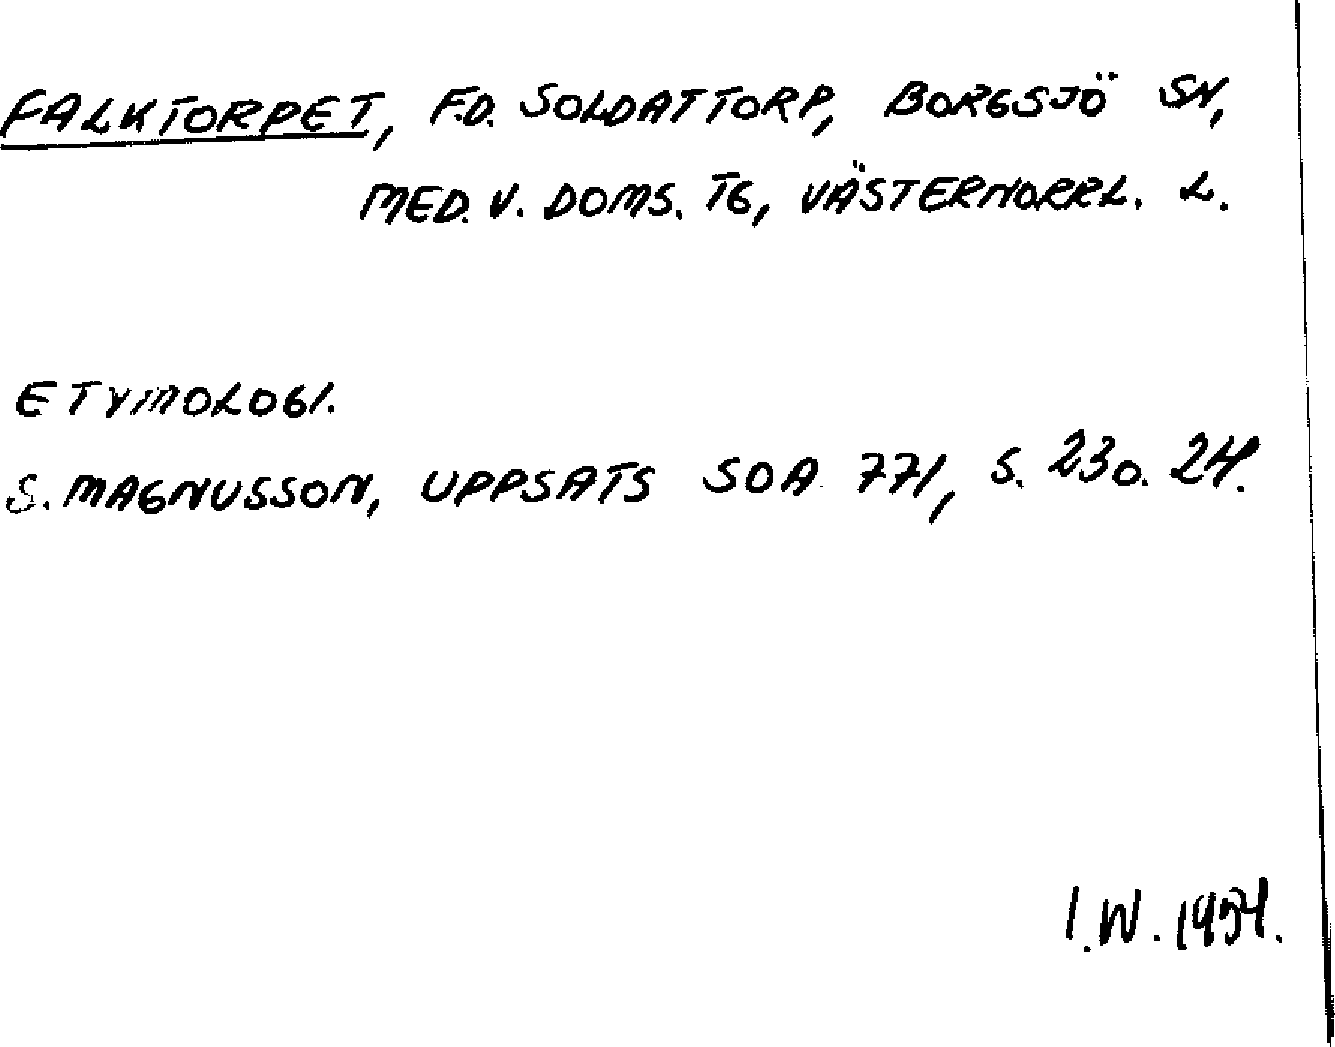 FALKTORPET, F.D. SOLDATTORP, BORGSJÖ SN,
MED. V. DOMS. TG, VÄSTERNORRL. L.
ETYMOLOGI.
S. MAGNUSSON, UPPSATS SOA 771, S. 23 O. 24.
I.W. 1954.